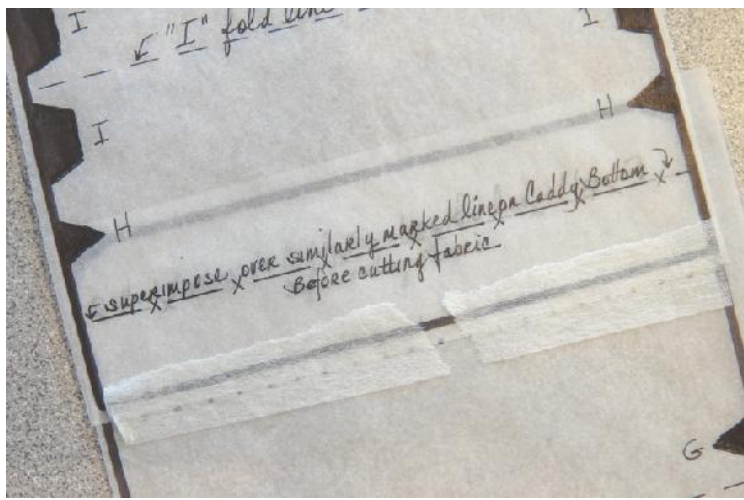 I
I
"I" fold line
I
H
H
superimpose over similarly marked line on Caddy Bottom
Before cutting fabric
G